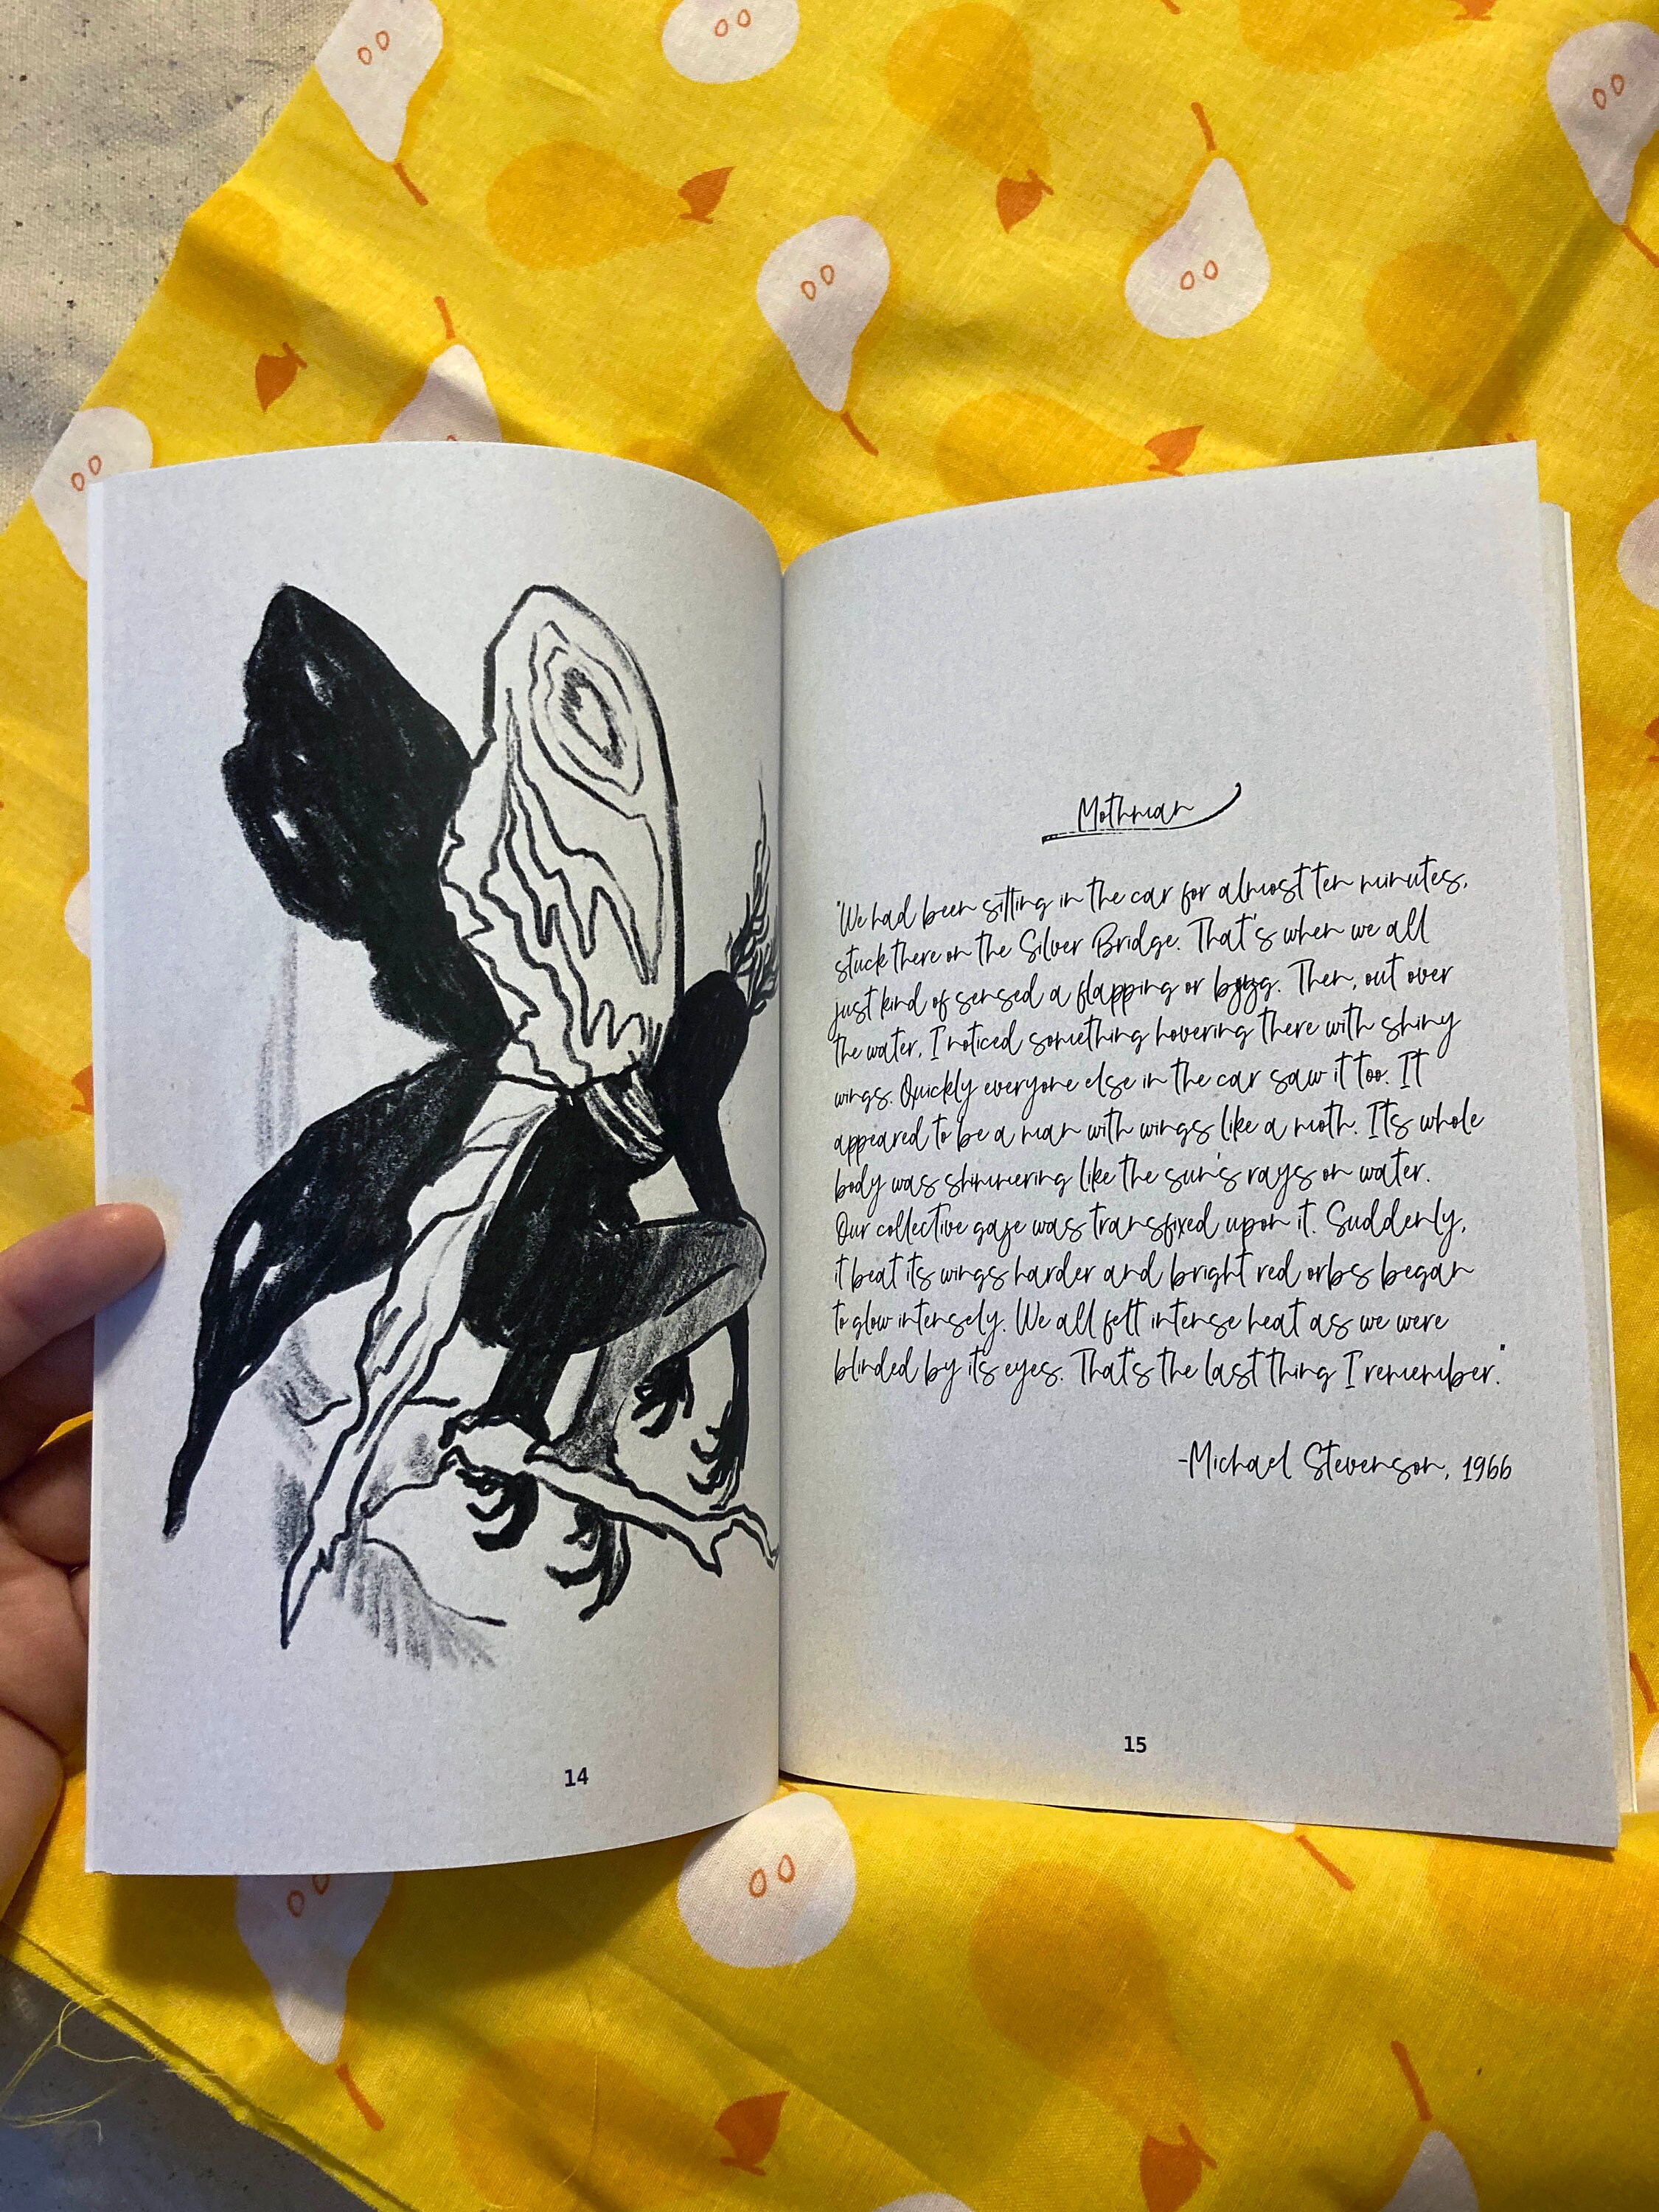 Mothman
"We had been sitting in the car for almost ten minutes,
stuck there on the Silver Bridge. That's when we all
just kind of sensed a flapping or . Then, out over
the water, I noticed something hovering there with shiny
wings. Quickly everyone else in the car saw it too. It
appeared to be a man with wings like a moth. It's whole
body was shimmering like the sun's rays on water.
Our collective gaze was transfixed upon it. Suddenly,
it beat its wings harder and bright red orbs began
to glow intensely. We all felt intense heat as we were
blinded by its eyes. That's the last thing I remember."
-Michael Stevenson, 1966
14
15